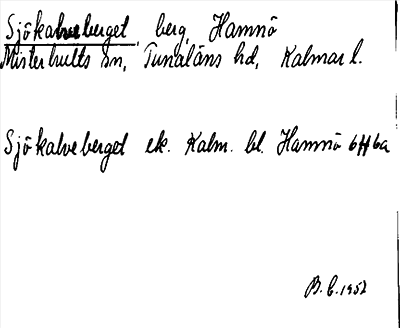 Sjökalveberget, berg, Hamnö
Misterhults sn, Tunaläns hd, Kalmar l.
Sjökalveberget ek. Kalm. bl. Hamnö 6H6a
B.C. 1952